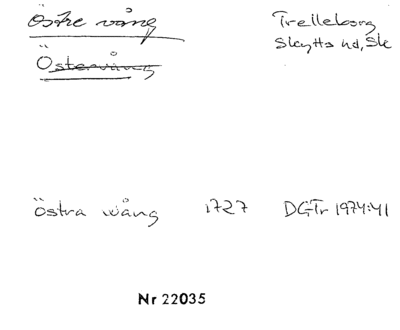 Östre vång Trelleborg
Skytts hd, Sk
Östervång
östra wång 1727 DGTr 1974:41
Nr 22035